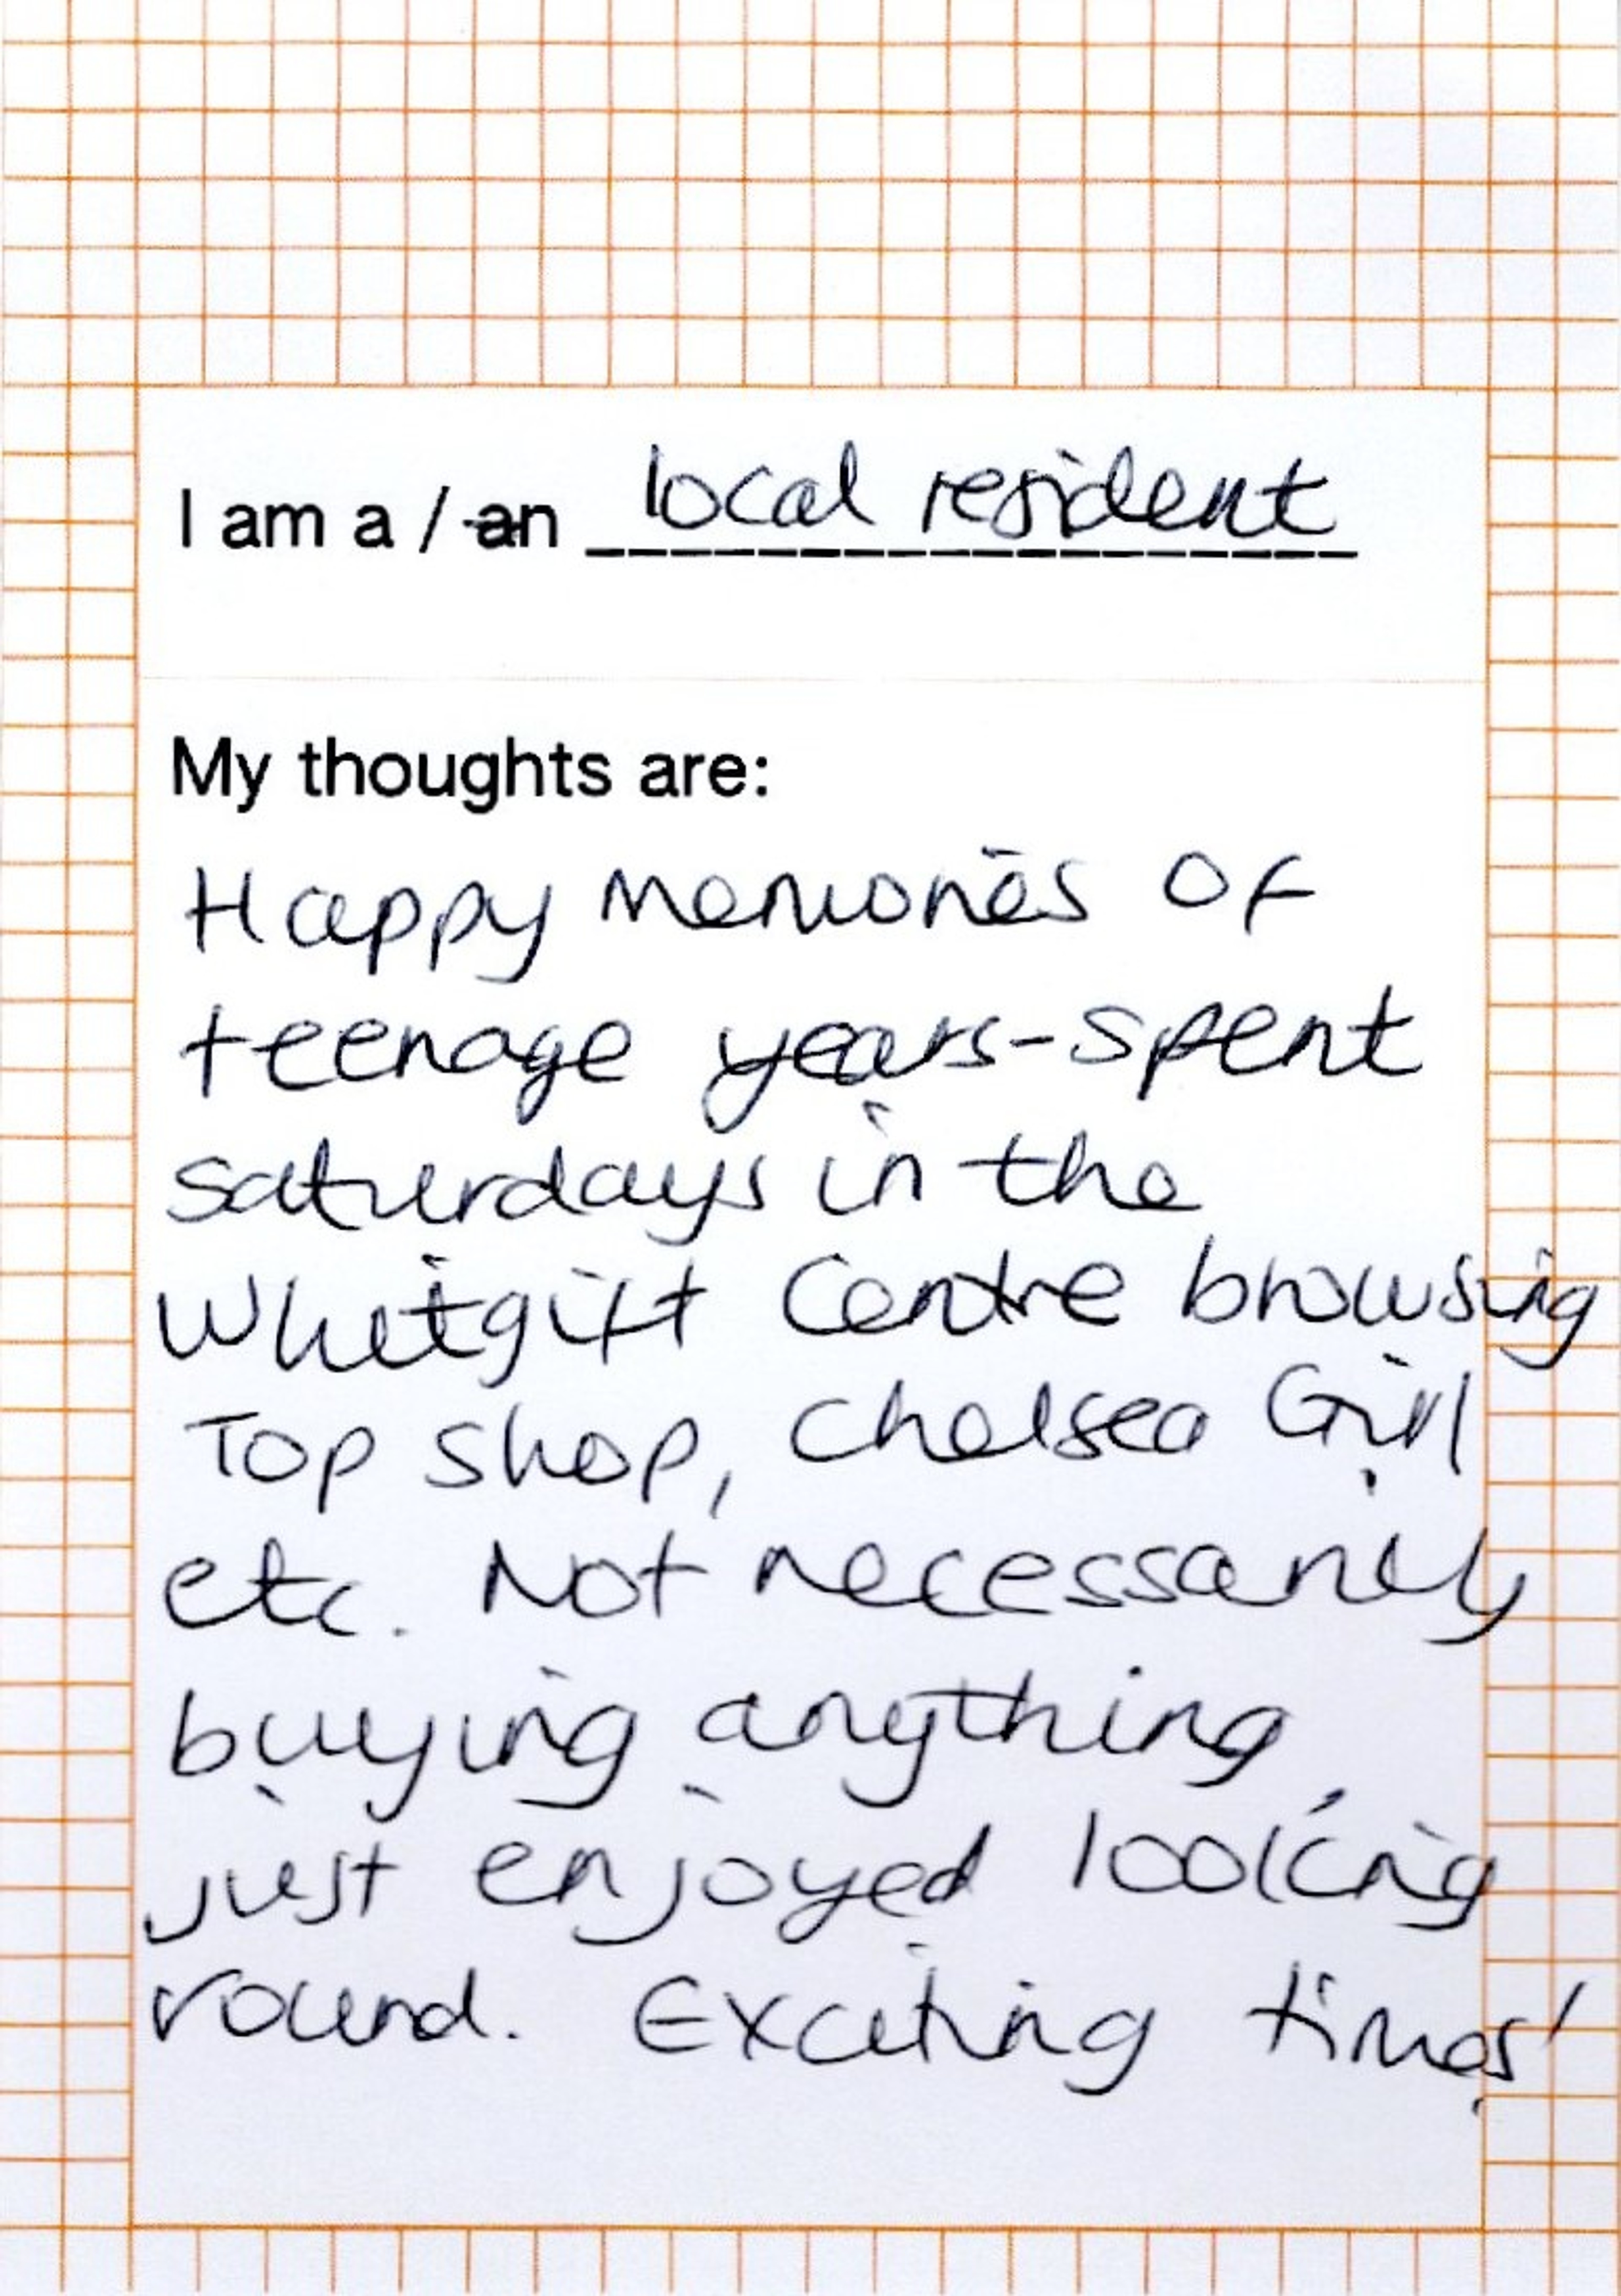 I am a / an local resident
My thoughts are:
Happy memories of
teenage years-spent
saturdays in the
Whitgift Centre browsing
Top shop, Chelsea Girl
etc. Not necessarily
buying anything,
just enjoyed looking
round. Exciting times!